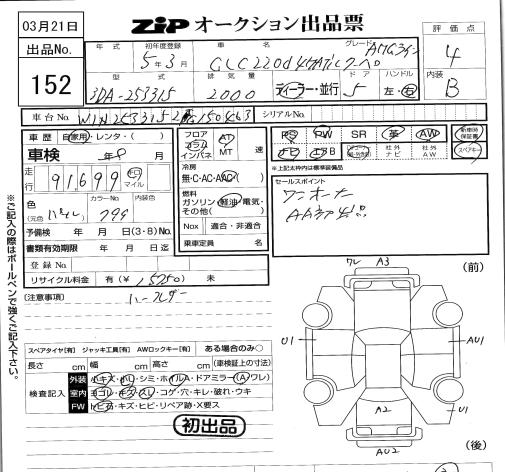 03月21日
ZIPオークション出品票
出品No.
152
年式
初年度登録
5年3月
車名
GLC220d4マチック クーペ
グレード
AMGライン
型式
3DA-253315
排気量
2000
ディーラー・並行
ドア
5
ハンドル
左・右
評価点
4
内装
B
車台No.
シリアルNo.
車歴
自家用・レンタ・( )
車検
年 月
走行
91699
km
マイル
色
(元色 )
カラーNo.
799
内装色
予備検 年 月 日(3・8)No.
書類有効期限 年 月 日迄
登録No.
リサイクル料金 有(¥ ) 未
フロア
コラム
インパネ
AT
MT
速
冷房
無・C・AC・AAC( )
燃料
ガソリン・軽油・電気・
その他( )
Nox 適合・非適合
乗車定員 名
PS PW SR 革 AW
ナビ エアB 社外ナビ 社外AW
新車時保証書
スペアキー
*上記太枠内は標準装備品
セールスポイント
ワンオーナー
AA初出品
(注意事項)
*ご記入の際はボールペンで強くご記入下さい。
スペアタイヤ[有] ジャッキ工具[有] AWロックキー[有] ある場合のみ○
長さ cm 幅 cm 高さ cm (車検証上の寸法)
検査記入
外装 小キズ・小凹・シミ・ホイルA・ドアミラー(A ワレ)
室内 ヨゴレ・キズ・スレ・コゲ・穴・キレ・破れ・ウキ
FW トビ石・キズ・ヒビ・リペア跡・X要ス
初出品
ワレ A3
(前)
U1
AU1
A2
U1
AU2
(後)